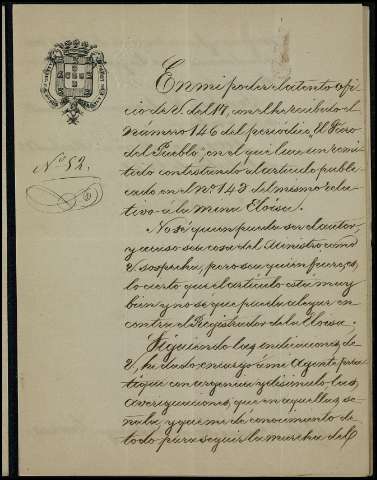 Nº 52.
En mi poder el atento ofi
cio de V. del 17, con el he recibido el
número 146 del periódico "El Faro
del Pueblo", en el que hace un remi
tido contestando al artículo publi-
cado en el nº 143 del mismo rela-
tivo á la mina Eloisa.
No sé quien pueda ser el autor
y acaso sea cosa del Ministro como
V. sospecha, pero sea quien fuere, es
lo cierto que el artículo está muy
bien y no sé que pueda alegar en
contra el Registrador de la Eloisa.
Siguiendo las indicaciones de
V., he dado encargo á mi Agente prac
tique con urgencia y disimulo las
averiguaciones, que en aquellas se-
ñala, y que me dé conocimiento de
todo para seguir la marcha del